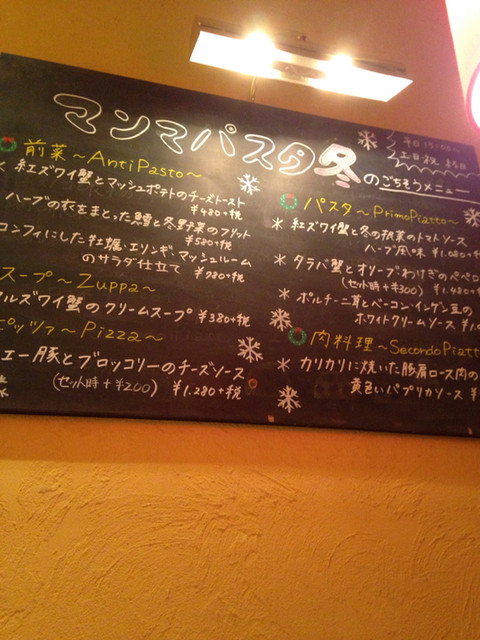 マンマパスタ冬のごちそうメニュー
平日15:00〜
土日祝
前菜〜AntiPasto〜
紅ズワイ蟹とマッシュポテトのチーズトースト
¥480+税
ハーブの衣をまとった鱈と冬野菜のフリット
¥580+税
コンフィにした牡蠣・エリンギ・マッシュルーム
のサラダ仕立て ¥980+税
スープ〜Zuppa〜
ルズワイ蟹のクリームスープ ¥380+税
ピッツァ〜Pizza〜
ェー豚とブロッコリーのチーズソース
(セット時+¥200) ¥1.280+税
パスタ〜PrimoPiatto〜
* 紅ズワイ蟹と冬の根菜のトマトソース
ハーブ風味 ¥1.080+税
* タラバ蟹とオリーブわけぎのペペロ
(セット時+¥300) ¥1.480+税
* ポルチーニ茸とベーコン・インゲン豆の
ホワイトクリームソース
肉料理〜SecondoPiatt
* カリカリに焼いた豚肩ロース肉の
黄色いパプリカソース ¥